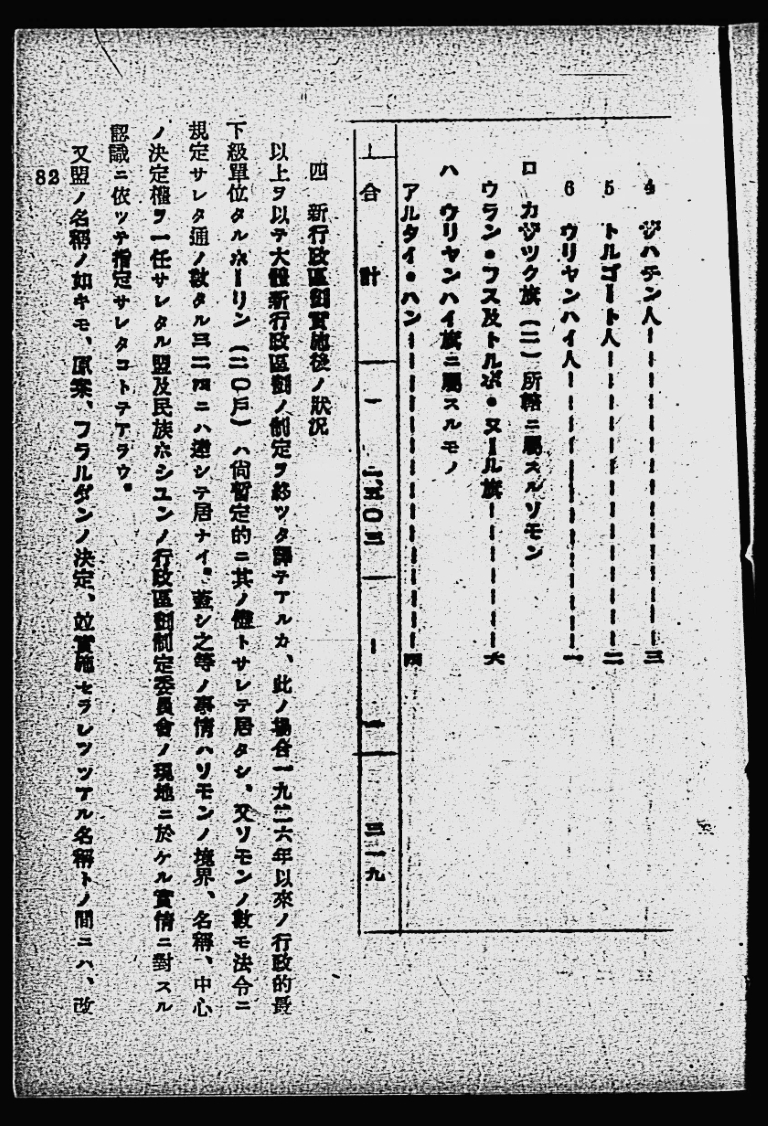 4 ヅハテン人ーーーーーーーーーーーー三
5 トルゴート人ーーーーーーーーーーーー二
6 ウリヤンハイ人ーーーーーーーーーーー一
ロ カヅツク旗(二)所轄ニ屬スルソモン
ウラン・フス及トルボ・ヌール旗ーーーーーー六
ハ ウリヤンハイ旗ニ屬スルモノ
アルタイ・ハンーーーーーーーーーーーー四
合計 一 一、五〇三 一 一 三一九
四 新行政區劃實施後ノ狀況
以上ヲ以テ大體新行政區劃ノ制定ヲ終ツタ譯デアルカ、此ノ場合一九二六年以來ノ行政的最
下級單位タルホーリン(二〇戶)ハ尙暫定的ニ其ノ儘トサレテ居タシ、又ソモンノ數モ法令ニ
規定サレタ通ノ數タル三二四ニハ達シテ居ナイ。蓋シ之等ノ事情ハソモンノ境界、名稱、中心
ノ決定權ヲ一任サレタル盟及民族ホシユンノ行政區劃制定委員會ノ現地ニ於ケル實情ニ對スル
認識ニ依ツテ指定サレタコトデアラウ。
又盟ノ名稱ノ如キモ、原案、フラルダンノ決定、竝實施セラレツツアル名稱トノ間ニハ、改
82